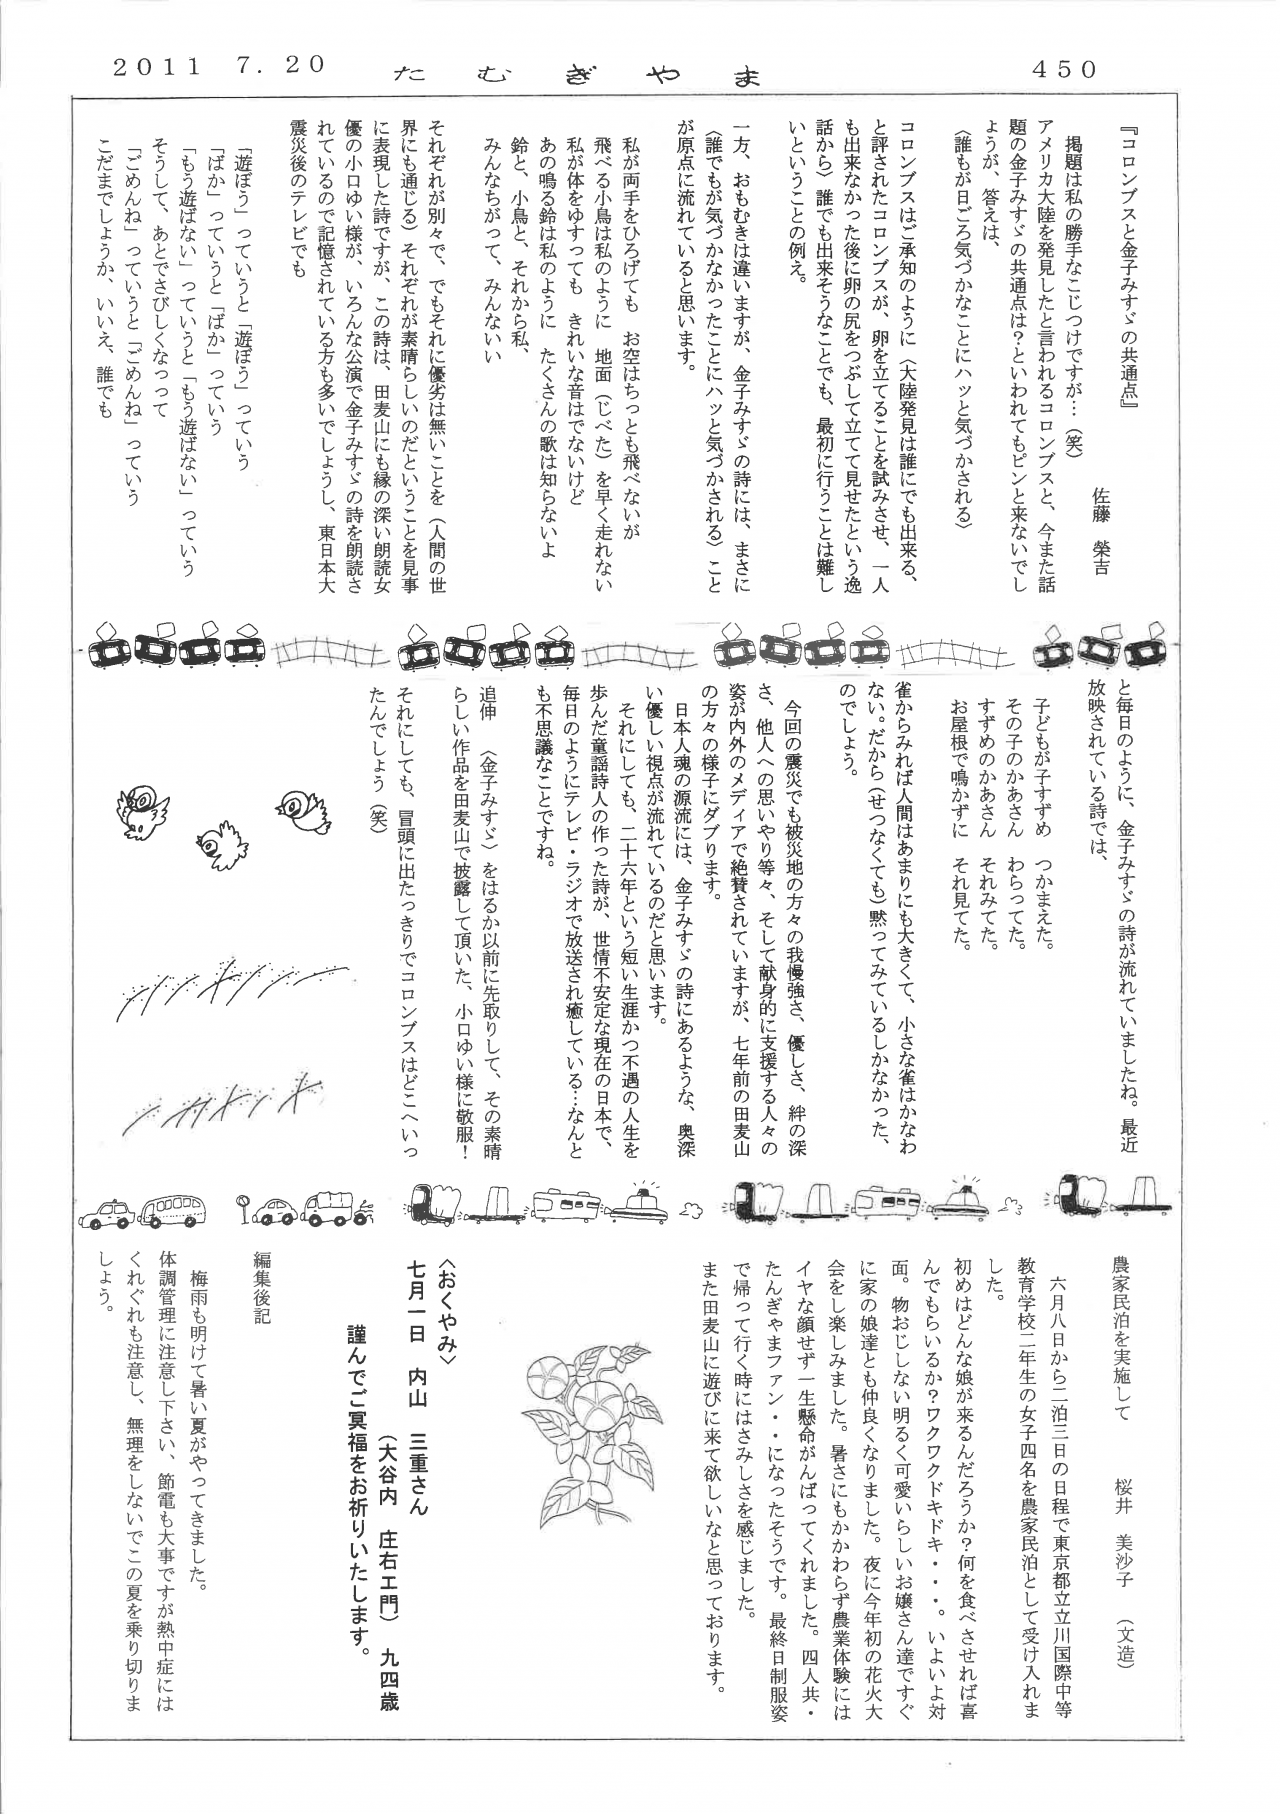 2011 7.20 たむぎやま 450
『コロンブスと金子みすゞの共通点』
佐藤 榮吉
掲題は私の勝手なこじつけですが…(笑)
アメリカ大陸を発見したと言われるコロンブスと、今また話
題の金子みすゞの共通点は?といわれてもピンと来ないでし
ょうが、答えは、
〈誰もが日ごろ気づかなことにハッと気づかされる〉
コロンブスはご承知のように〈大陸発見は誰にでも出来る、
と評されたコロンブスが、卵を立てることを試みさせ、一人
も出来なかった後に卵の尻をつぶして立てて見せたという逸
話から〉誰でも出来そうなことでも、最初に行うことは難し
いということの例え。
一方、おもむきは違いますが、金子みすゞの詩には、まさに
〈誰でもが気づかなかったことにハッと気づかされる〉こと
が原点に流れていると思います。
私が両手をひろげても お空はちっとも飛べないが
飛べる小鳥は私のように 地面(じべた)を早く走れない
私が体をゆすっても きれいな音はでないけど
あの鳴る鈴は私のように たくさんの歌は知らないよ
鈴と、小鳥と、それから私、
みんなちがって、みんないい
それぞれが別々で、でもそれに優劣は無いことを(人間の世
界にも通じる)それぞれが素晴らしいのだということを見事
に表現した詩ですが、この詩は、田麦山にも縁の深い朗読女
優の小口ゆい様が、いろんな公演で金子みすゞの詩を朗読さ
れているので記憶されている方も多いでしょうし、東日本大
震災後のテレビでも
「遊ぼう」っていうと「遊ぼう」っていう
「ばか」っていうと「ばか」っていう
「もう遊ばない」っていうと「もう遊ばない」っていう
そうして、あとでさびしくなって
「ごめんね」っていうと「ごめんね」っていう
こだまでしょうか、いいえ、誰でも
と毎日のように、金子みすゞの詩が流れていましたね。最近
放映されている詩では、
子どもが子すずめ つかまえた。
その子のかあさん わらってた。
すずめのかあさん それみてた。
お屋根で鳴かずに それ見てた。
雀からみれば人間はあまりにも大きくて、小さな雀はかなわ
ない。だから(せつなくても)黙ってみているしかなかった、
のでしょう。
今回の震災でも被災地の方々の我慢強さ、優しさ、絆の深
さ、他人への思いやり等々、そして献身的に支援する人々の
姿が内外のメディアで絶賛されていますが、七年前の田麦山
の方々の様子にダブります。
日本人魂の源流には、金子みすゞの詩にあるような、奥深
い優しい視点が流れているのだと思います。
それにしても、二十六年という短い生涯かつ不遇の人生を
歩んだ童謡詩人の作った詩が、世情不安定な現在の日本で、
毎日のようにテレビ・ラジオで放送され癒している…なんと
も不思議なことですね。
追伸 〈金子みすゞ〉をはるか以前に先取りして、その素晴
らしい作品を田麦山で披露して頂いた、小口ゆい様に敬服!
それにしても、冒頭に出たっきりでコロンブスはどこへいっ
たんでしょう(笑)
農家民泊を実施して 桜井 美沙子 (文造)
六月八日から二泊三日の日程で東京都立立川国際中等
教育学校二年生の女子四名を農家民泊として受け入れま
した。
初めはどんな娘が来るんだろうか?何を食べさせれば喜
んでもらいるか?ワクワクドキドキ・・・。いよいよ対
面。物おじしない明るく可愛いらしいお嬢さん達ですぐ
に家の娘達とも仲良くなりました。夜に今年初の花火大
会をし楽しみました。暑さにもかかわらず農業体験には
イヤな顔せず一生懸命がんばってくれました。四人共・
たんぎやまファン・・になったそうです。最終日制服姿
で帰って行く時にはさみしさを感じました。
また田麦山に遊びに来て欲しいなと思っております。
〈おくやみ〉
七月一日 内山 三重さん
(大谷内 庄右エ門) 九四歳
謹んでご冥福をお祈りいたします。
編集後記
梅雨も明けて暑い夏がやってきました。
体調管理に注意し下さい、節電も大事ですが熱中症には
くれぐれも注意し、無理をしないでこの夏を乗り切りま
しょう。